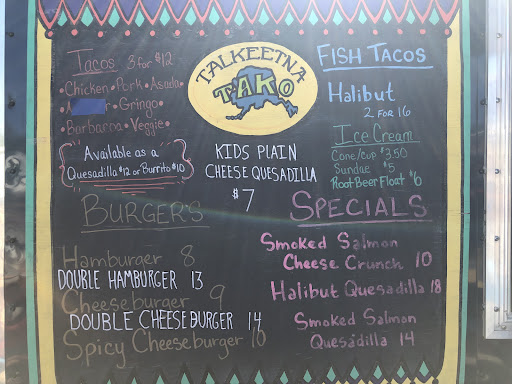 Tacos 3 for $12
•Chicken•Pork•Asada
•Gringo•
•Barbacoa•Veggie•
Available as a
Quesadilla $12 or Burrito $10
BURGERS
Hamburger 8
DOUBLE HAMBURGER 13
Cheeseburger 9
DOUBLE CHEESEBURGER 14
Spicy Cheeseburger 10
TALKEETNA
TAKO
KIDS PLAIN
CHEESE QUESADILLA
$7
FISH TACOS
Halibut
2 FOR 16
Ice Cream
Cone/Cup $3.50
Sundae $5
Root Beer Float $6
SPECIALS
Smoked Salmon
Cheese Crunch 10
Halibut Quesadilla 18
Smoked Salmon
Quesadilla 14